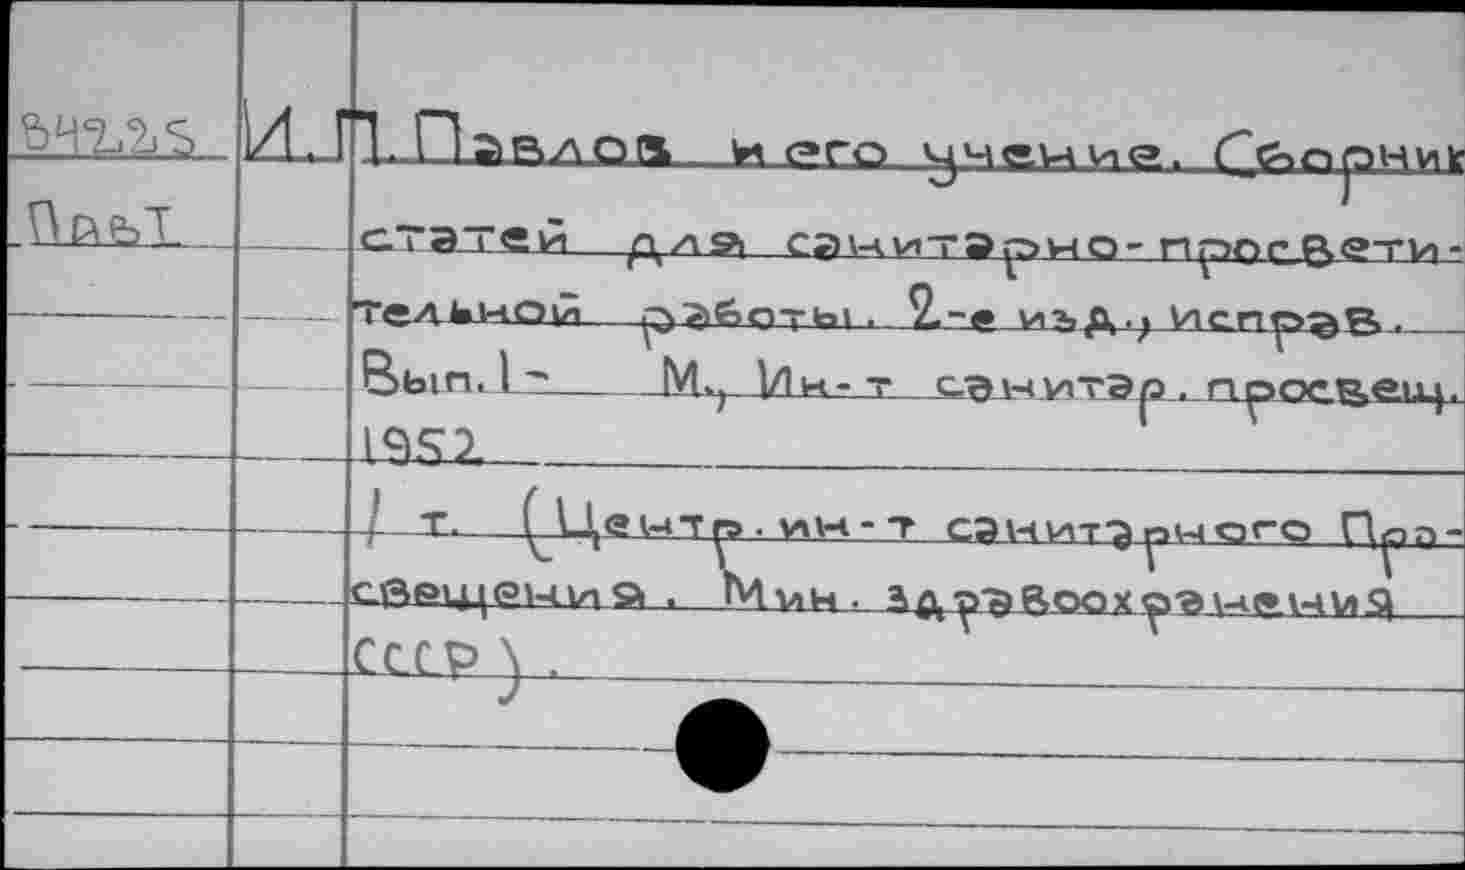 В42.25 И.П.Павлов и его учение. Сборник
ПавТ статей для санитарно-просвети-
тельной работы. 2-е изд., исправ.
Вып. 1- М., Ин-т санитар. просвещ.
1952
/ т. (Центр. ин-т санитарного Про-
свещения. Мин. здравоохранения
СССР).